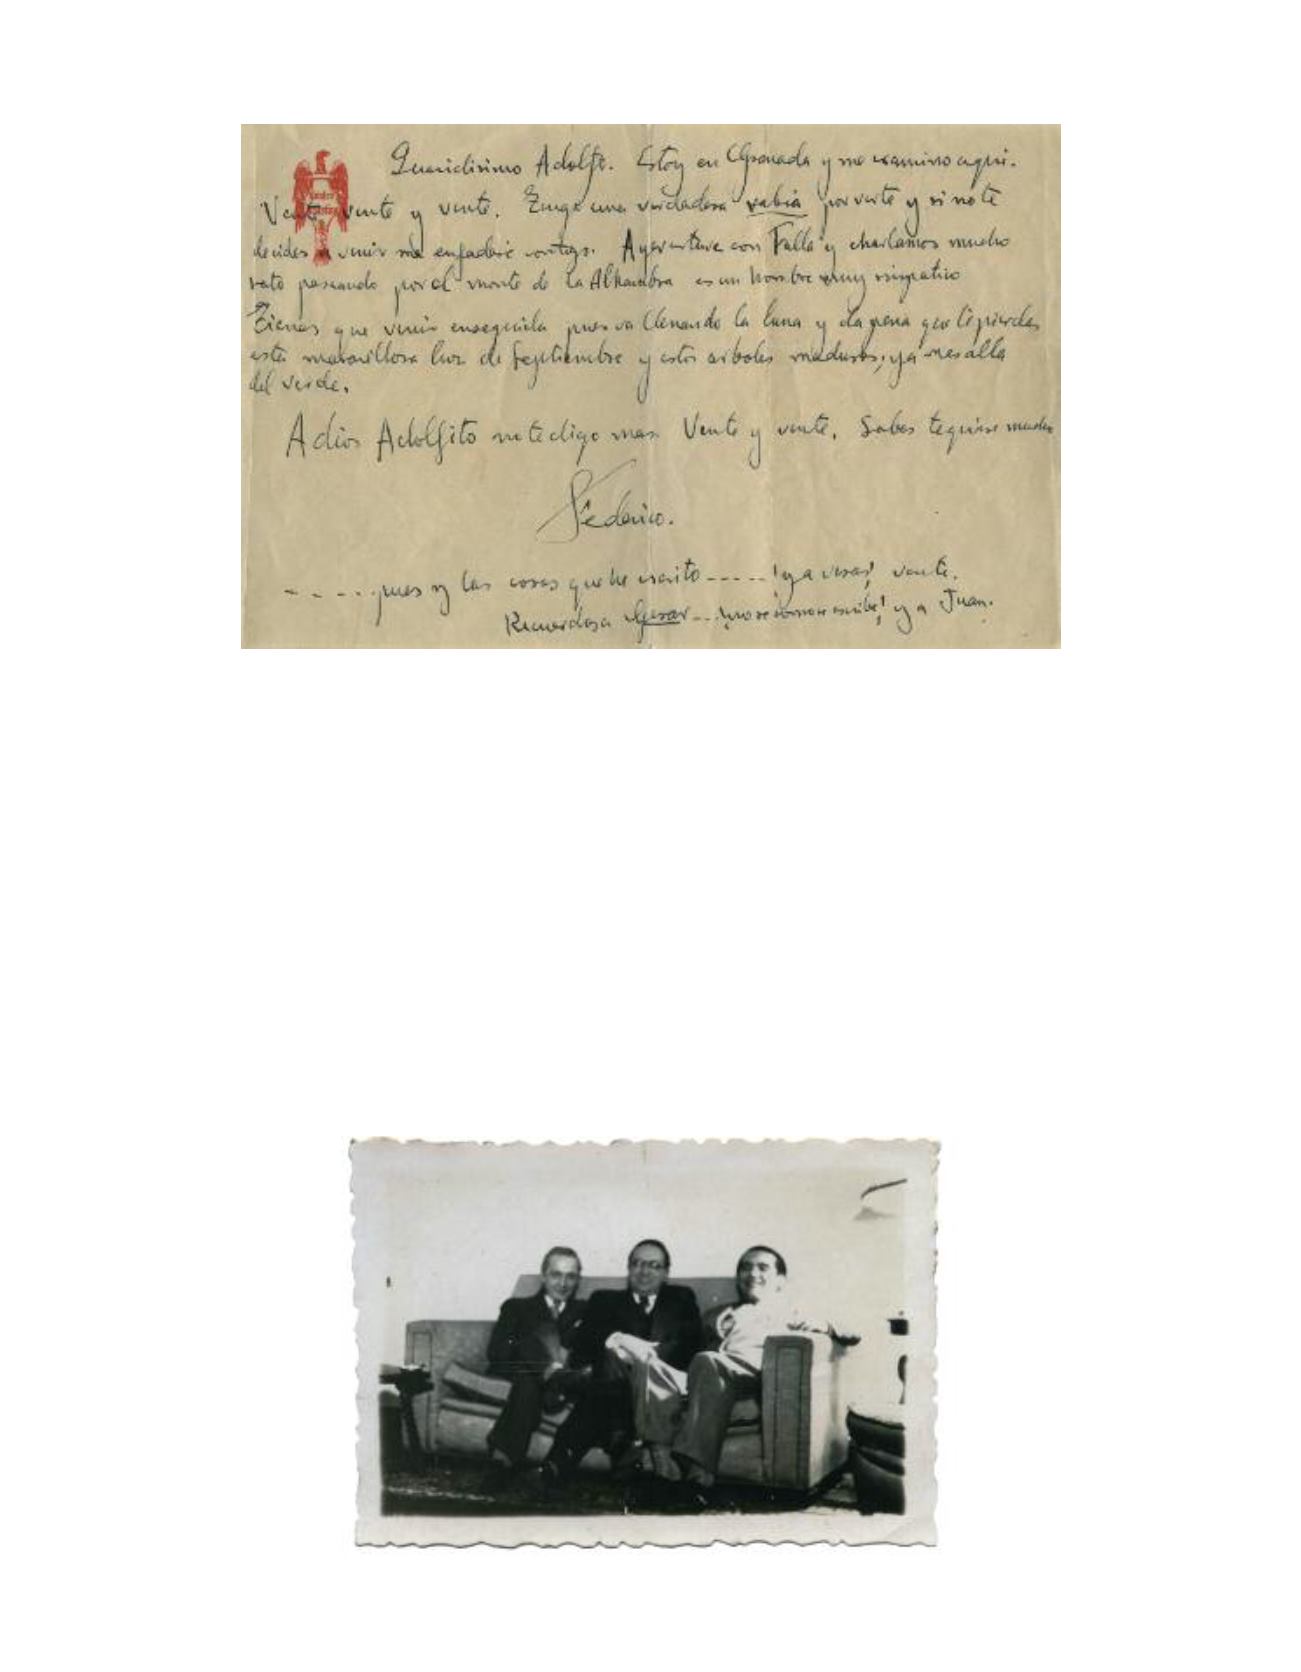 Queridisimo Adolfo. Estoy en Granada y me examino aqui.
Vente vente y vente. Tengo una verdadera rabia por verte y si no te
decides a venir me enfadaré contigo. Ayer estuve con Falla y charlamos mucho
rato paseando por el monte de la Alhambra es un hombre muy simpatico
Tienes que venir enseguida pues va llenando la luna y da pena que te pierdas
esta maravillosa luz de Septiembre y estos arboles maduros, ya mas alla
del verde.
Adios Adolfito no te digo mas Vente y vente. Sabes te quiere mucho
Federico.
- - - - . pues y las cosas que he escrito - - - - - ! ya veras! vente.
Recuerdos a Cesar - - - ya Juan.